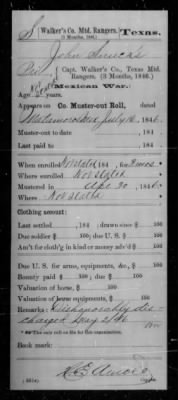 S Walker's Co. Mtd. Rangers. Texas.
(3 Months, 1846.)
John
Pvt., Capt. Walker's Co., Texas Mtd.
Rangers. (3 Months, 1846.)
Mexican War.
Age years.
Appears on Co. Muster-out Roll, dated
July 16, 1846.
Muster-out to date , 184
Last paid to , 184
When enrolled Not stated, 184 , for 3 mos
Where enrolled Not stated
Mustered in Apr. 20, 1846.
Where Not stated
Clothing account:
Last settled , 184 ; drawn since $ 100
Due soldier $ 100; due U. S. $ 100
Am't for cloth'g in kind or money adv'd $ 100
Due U. S. for arms, equipments, &c., $ 100
Bounty paid $ 100; due $ 100
Valuation of horse, $ 100
Valuation of horse equipments, $ 100
Remarks: Dishonorably dis-
charged May 21/46
Book mark: